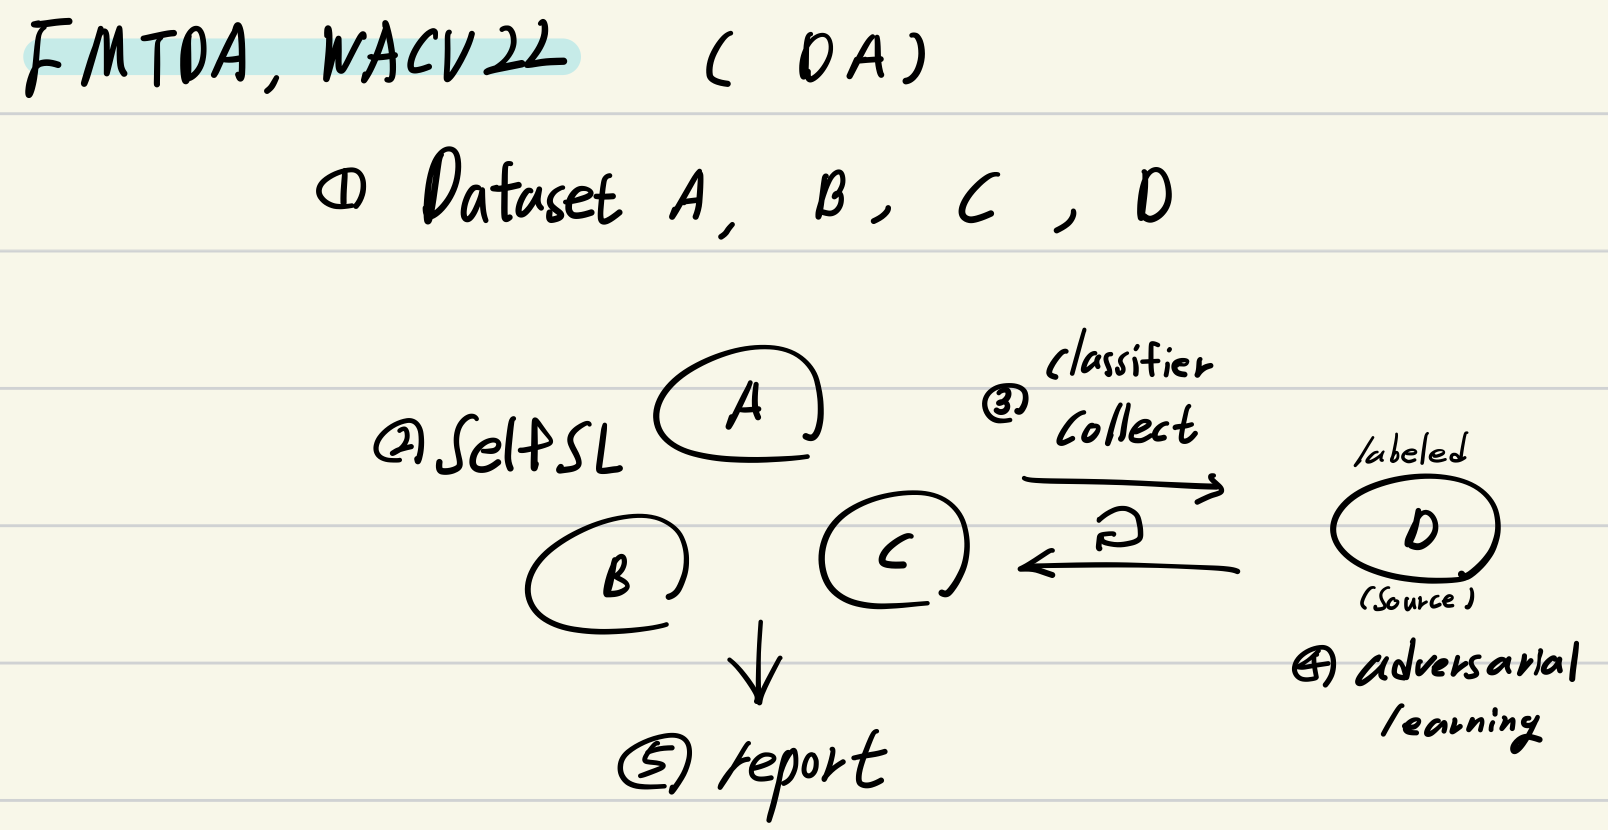 FMTDA, WACV22 (DA)
① Dataset A, B, C, D
A
③ classifier
collect
② SelfSL
labeled
B
C
D
(Source)
④ adversarial
learning
⑤ report